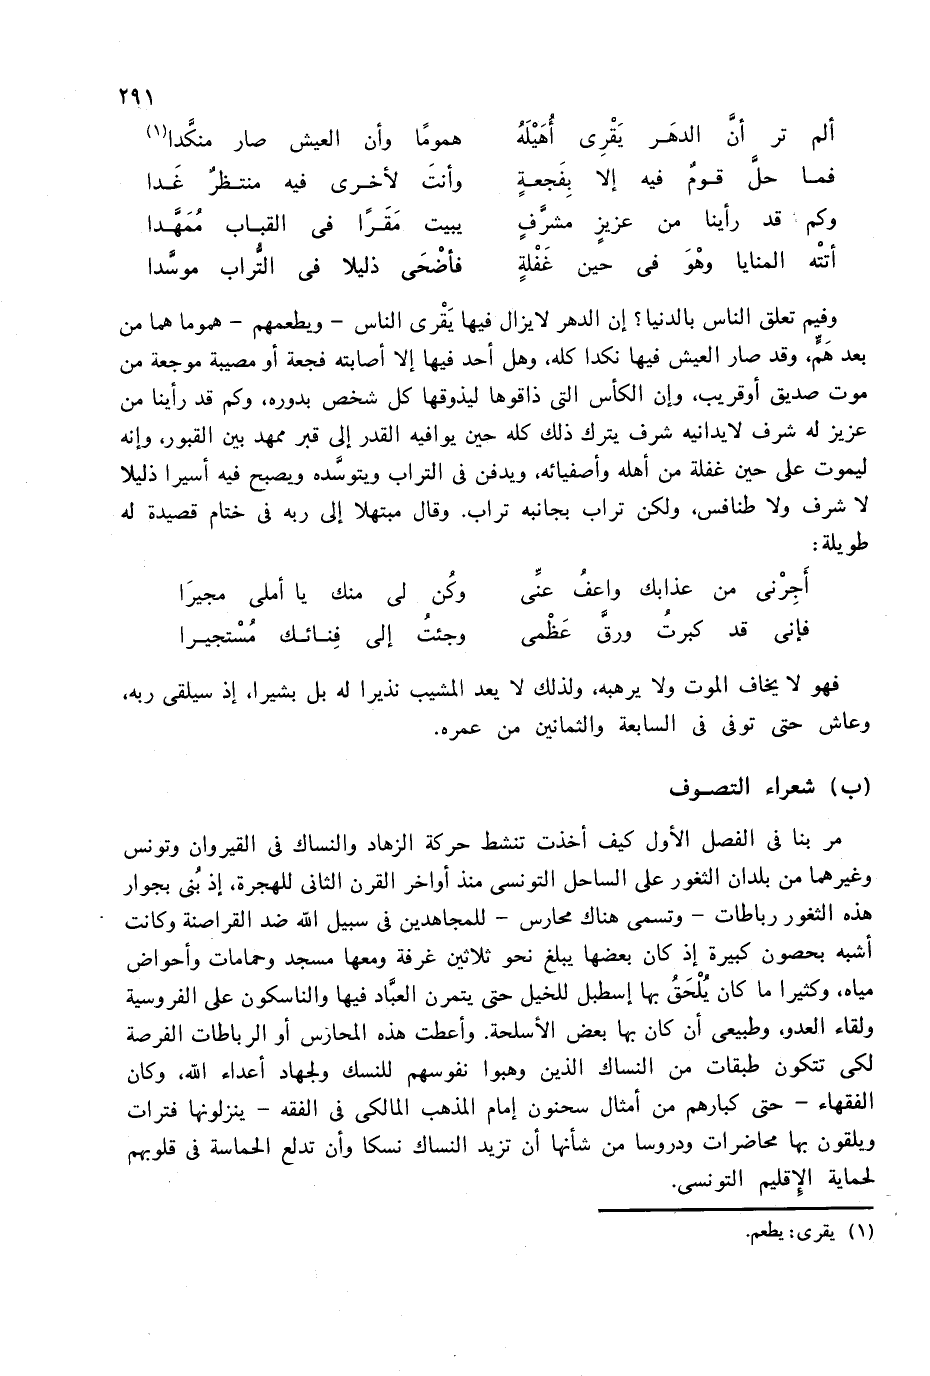 ٢٩١
ألم تر أنَّ الدهَـر يَقْرِى أُهَيْلَهُ همومًا وأن العيش صار منكَّدا(١)
فمـا حلَّ قـومٌ فيه إلا بِفَجعـةٍ وأنتَ لأخـرى فيه منتـظرٌ غَـدا
وكم قد رأينا من عزيزٍ مشرَّفٍ يبيت مَقَـرًا فى القبـاب مُمَهَّـدا
أتتْه المنايا وهْوَ فى حين غَفْلةٍ فأضْحَى ذليلا فى التُّراب موسَّدا
وفيم تعلق الناس بالدنيا؟ إن الدهر لايزال فيها يَقْرى الناس – ويطعمهم – هموما هما من
بعد هَمٍّ، وقد صار العيش فيها نكدا كله، وهل أحد فيها إلا أصابته فجعة أو مصيبة موجعة من
موت صديق أوقريب، وإن الكأس التى ذاقوها ليذوقها كل شخص بدوره، وكم قد رأينا من
عزيز له شرف لايدانيه شرف يترك ذلك كله حين يوافيه القدر إلى قبر ممهد بين القبور، وإنه
ليموت على حين غفلة من أهله وأصفيائه، ويدفن فى التراب ويتوسَّده ويصبح فيه أسيرا ذليلا
لا شرف ولا طنافس، ولكن تراب بجانبه تراب. وقال مبتهلا إلى ربه فى ختام قصيدة له
طويلة:
أَجِرْنى من عذابك واعفُ عنِّى وكُن لى منك يا أملى مجيرَا
فإنى قد كبرتُ ورقَّ عَظْمى وجئتُ إلى فِنـائـك مُسْتجيـرا
فهو لا يخاف الموت ولا يرهبه، ولذلك لا يعد المشيب نذيرا له بل بشيرا، إذ سيلقى ربه،
وعاش حتى توفى فى السابعة والثمانين من عمره.
(ب) شعراء التصـوف
مر بنا فى الفصل الأول كيف أخذت تنشط حركة الزهاد والنساك فى القيروان وتونس
وغيرهما من بلدان الثغور على الساحل التونسى منذ أواخر القرن الثانى للهجرة، إذ بُنى بجوار
هذه الثغور رباطات – وتسمى هناك محارس – للمجاهدين فى سبيل الله ضد القراصنة وكانت
أشبه بحصون كبيرة إذ كان بعضها يبلغ نحو ثلاثين غرفة ومعها مسجد وحمامات وأحواض
مياه، وكثيرا ما كان يُلْحَقُ بها إسطبل للخيل حتى يتمرن العبَّاد فيها والناسكون على الفروسية
ولقاء العدو، وطبيعى أن كان بها بعض الأسلحة. وأعطت هذه المحارس أو الرباطات الفرصة
لكى تتكون طبقات من النساك الذين وهبوا نفوسهم للنسك ولجهاد أعداء الله، وكان
الفقهاء – حتى كبارهم من أمثال سحنون إمام المذهب المالكى فى الفقه – ينزلونها فترات
ويلقون بها محاضرات ودروسا من شأنها أن تزيد النساك نسكا وأن تدلع الحماسة فى قلوبهم
لحماية الإقليم التونسى.
(١) يقرى: يطعم.